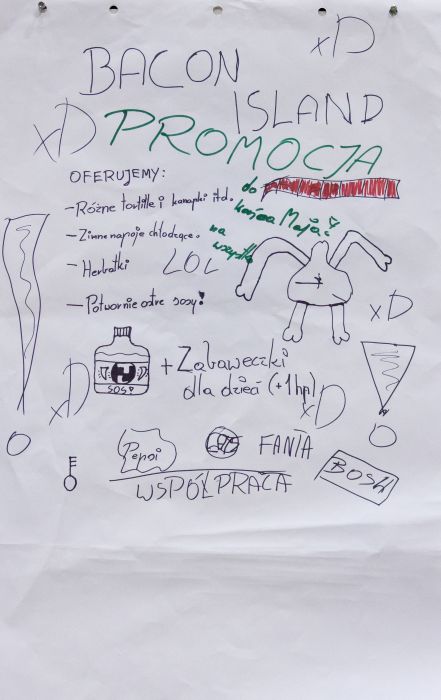 xD
BACON
ISLAND
xD
PROMOCJA
OFERUJEMY:
do
końca Maja!
na
wszystko
- Różne tortille i kanapki itd.
- Zimne napoje chłodzące.
- Herbatki
LOL
- Potwornie ostre sosy!
xD
SOS!
+ Zabaweczki
dla dzieci (+1hp)
xD
xD
Pepsi
FANTA
BOSH
WSPÓŁPRACA